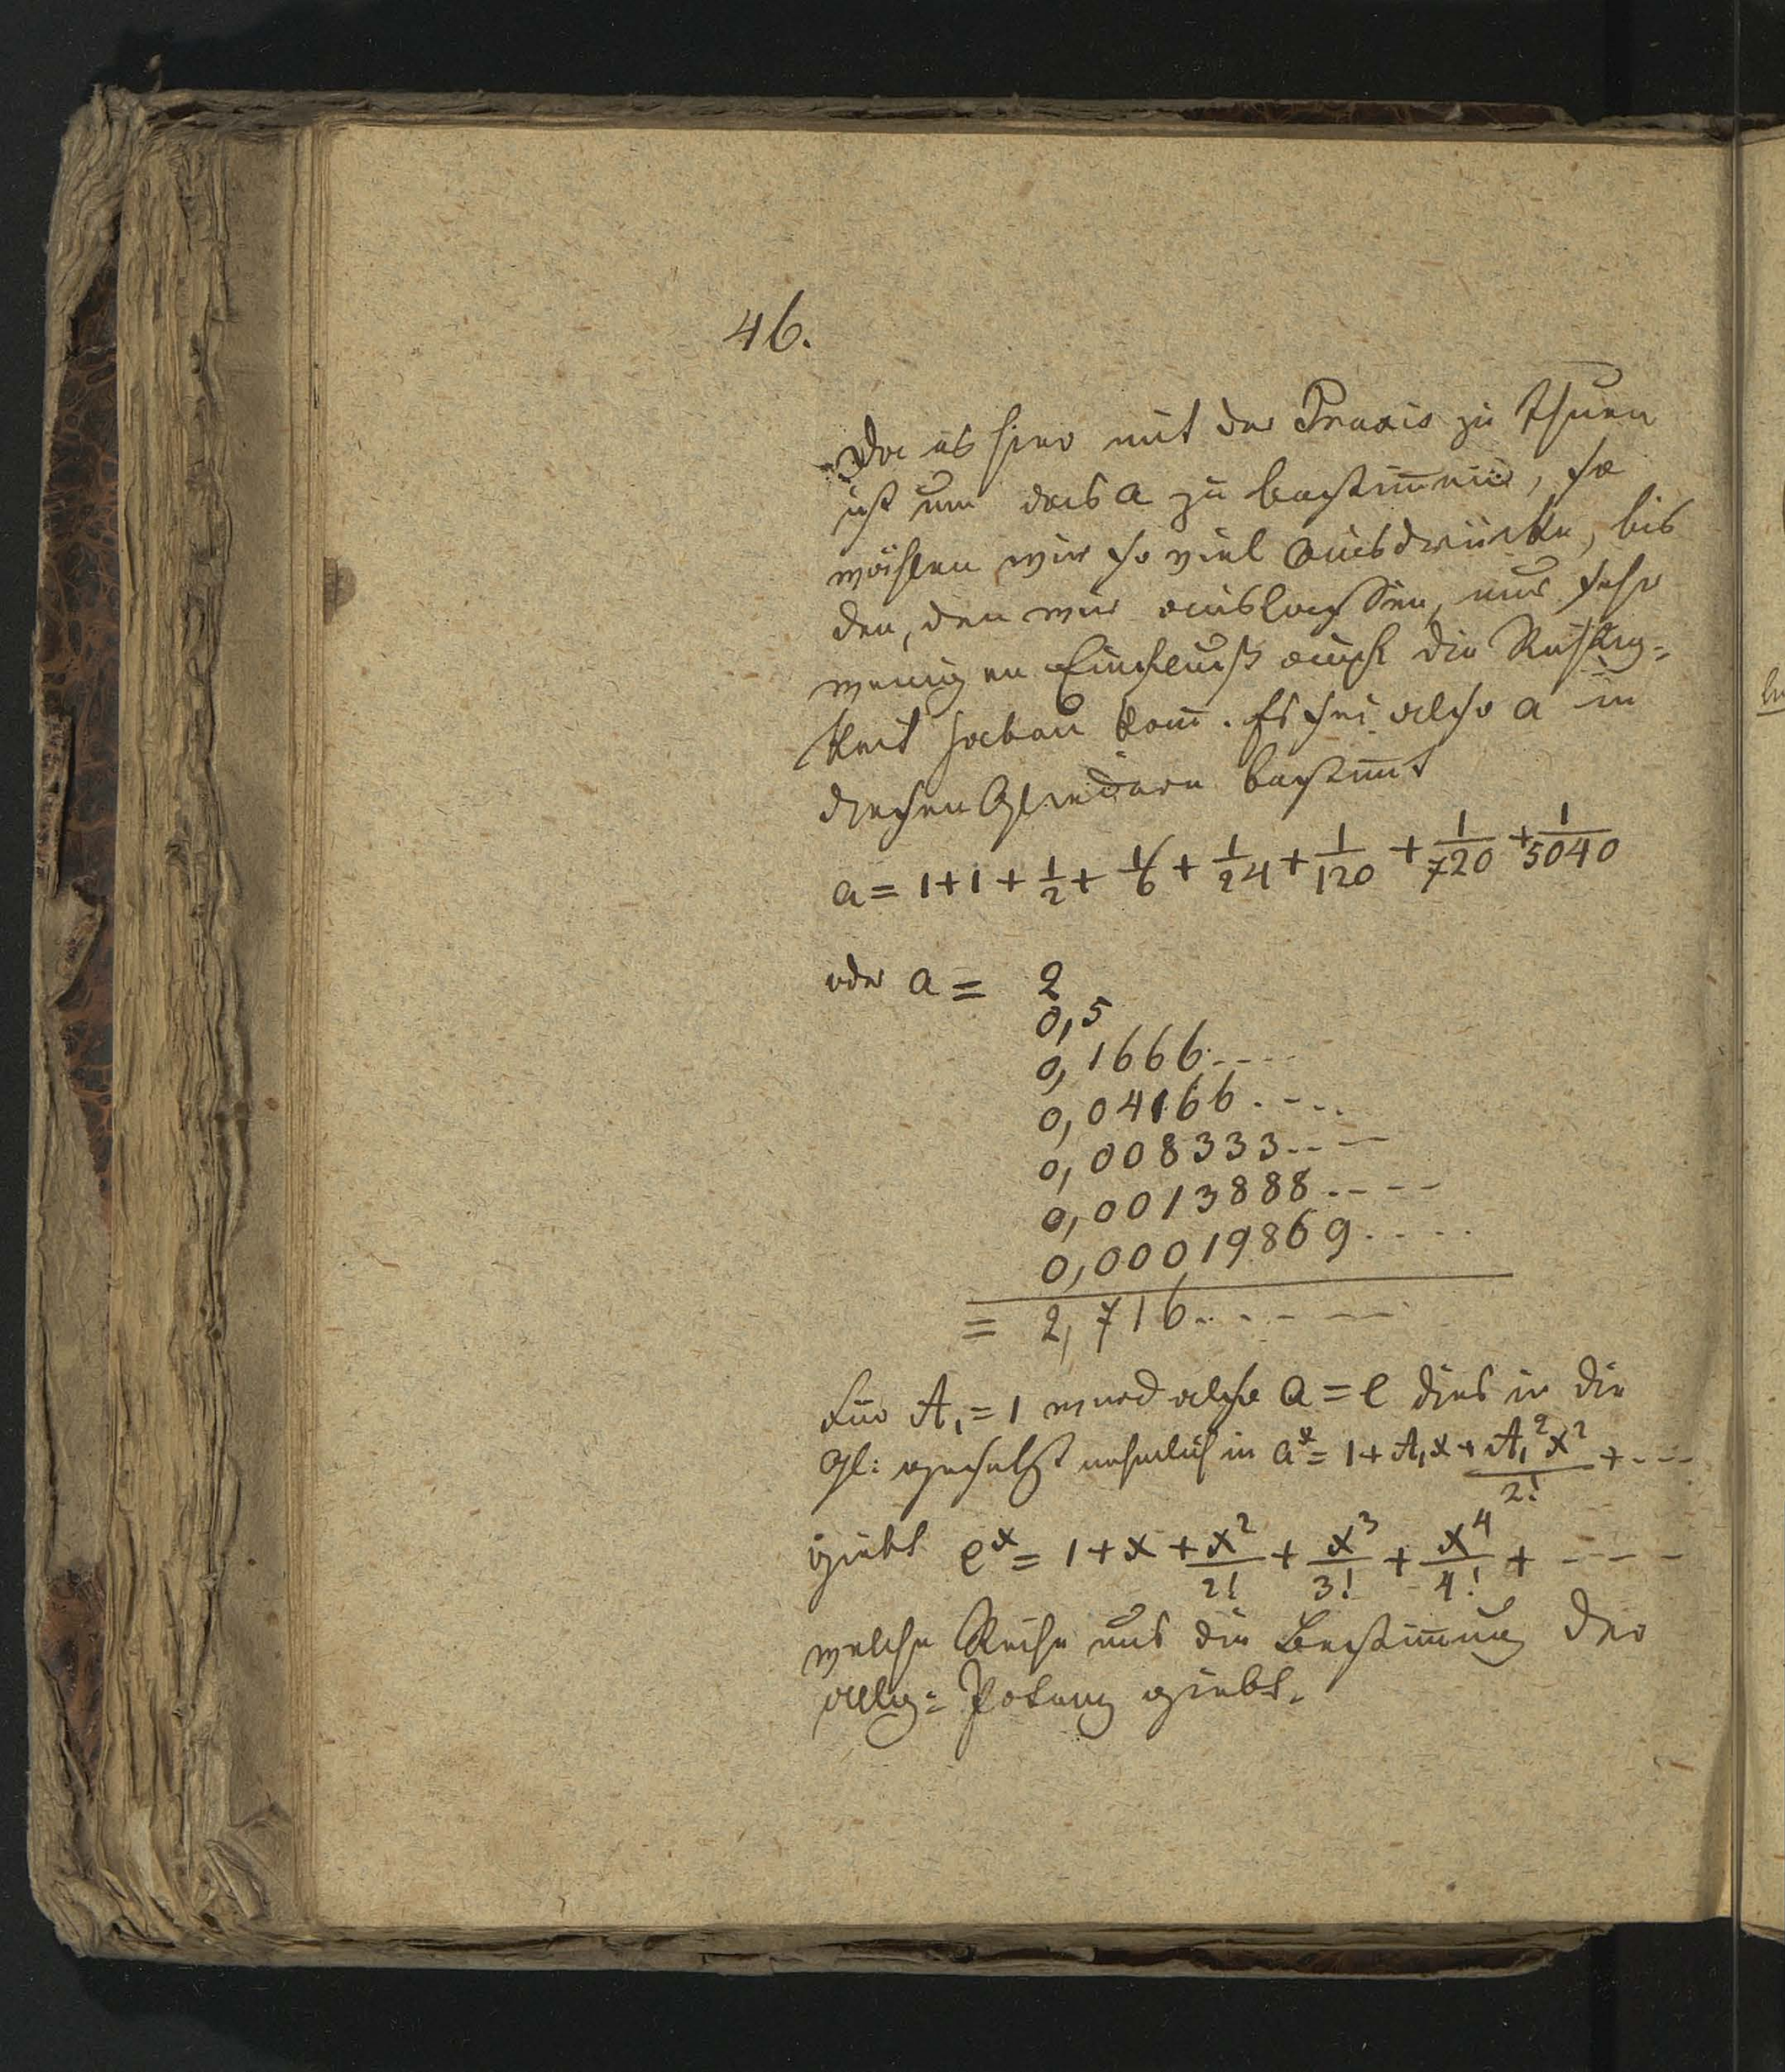 46.
Da es hier mit der Praxis zu thuen
ist um das a zu bestim̅en, so
wählen wir so viel Ausdrücke, bis
den, den wir auslassen, nur sehr
wenigen Einfluß auf die Richtig=
keit haben kan̅. Es sei also a in
diesen Gliedern bestim̅t
a = 1+1 + 1/2 + 1/6 + 1/24 + 1/120 + 1/720 + 1/5040
oder a = 2
0,5
0,1666....
0,04166....
0,008333....
0,0013888....
0,00019869.....
= 2,716......
Für A₁ = 1 wird also a = e dies in die
Gl: gesetzt nehmlich in aˣ = 1 + A₁x + A₁²x²/2! + ...
giebt eˣ = 1 + x + x²/2! + x³/3! + x⁴/4! + ....
welche Reihe uns die Bestim̅ung der
allg: Potenz giebt.